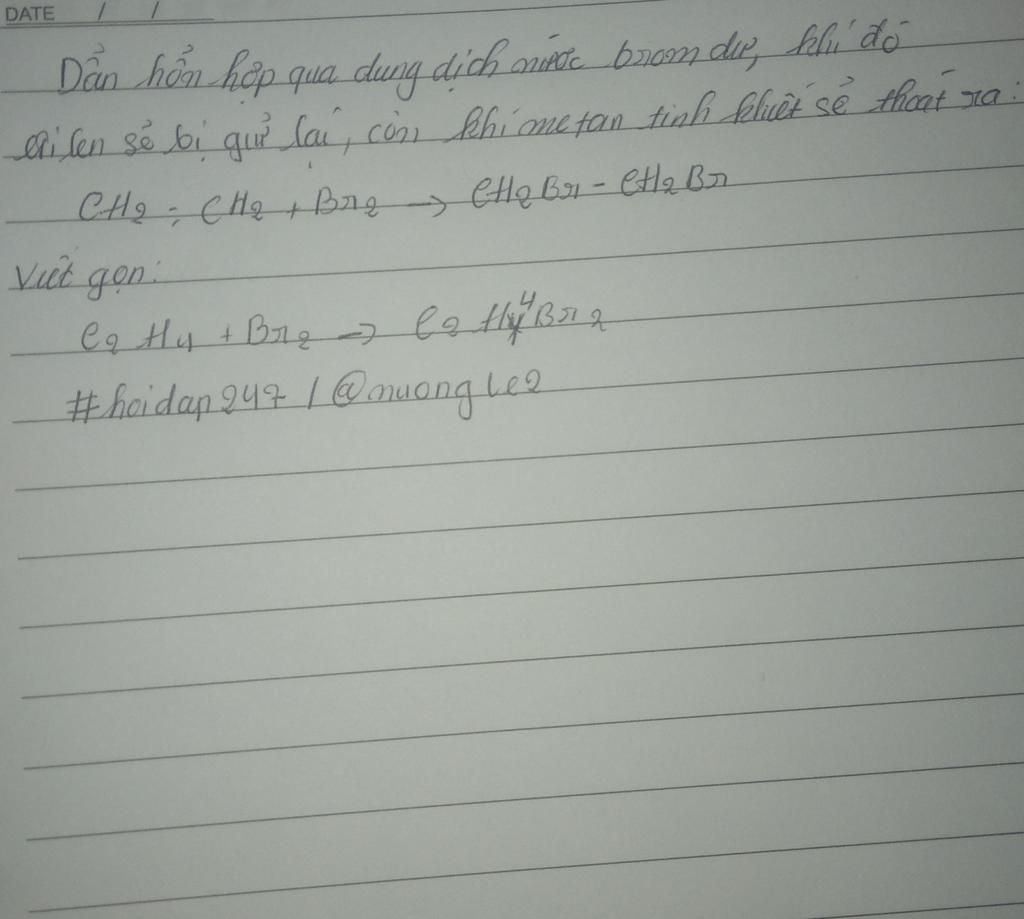 DATE / /
Dẩn hổn hợp qua dung dịch nước brom dư, khi đó
etilen sẻ bị giử lại, còn khí metan tinh khiết sẻ thoát ra:
CH2 = CH2 + Br2 → CH2Br - CH2Br
Viết gọn:
C2H4 + Br2 → C2H4Br2
#hoidap247 / @nuongle2